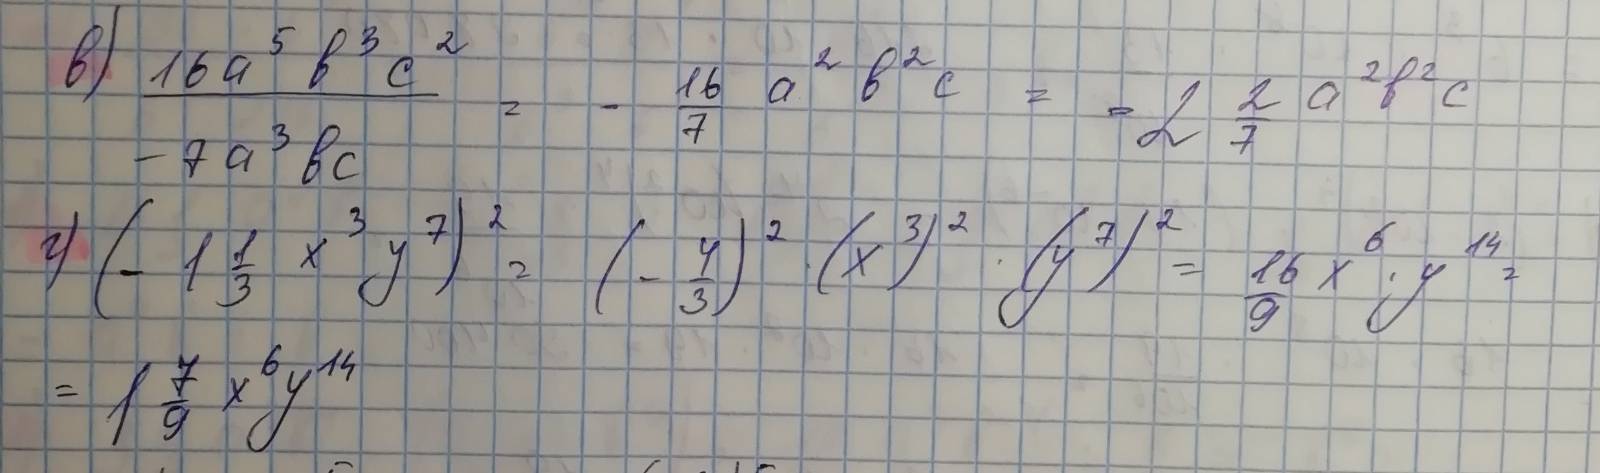 в) 16a⁵b³c² / -7a³bc = - 16/7 a²b²c = - 2 2/7 a²b²c
г) (- 1 1/3 x³y⁷)² = (- 4/3)² · (x³)² · (y⁷)² = 16/9 x⁶ · y¹⁴ =
= 1 7/9 x⁶y¹⁴